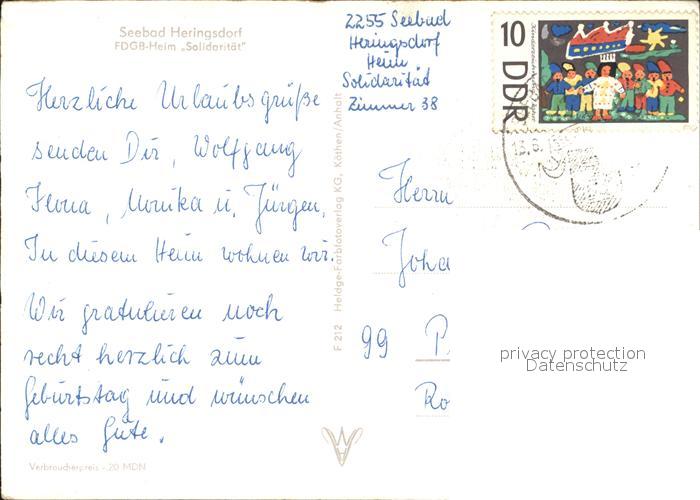 Seebad Heringsdorf
FDGB-Heim „Solidarität"
Herzliche Urlaubsgrüße
senden Dir, Wolfgang
Ilona, Monika u. Jürgen.
In diesem Heim wohnen wir.
Wir gratulieren noch
recht herzlich zum
Geburtstag und wünschen
alles Gute.
Verbraucherpreis -,20 MDN
F 212 Heldge-Farbfotoverlag KG, Köthen/Anhalt
2255 Seebad
Heringsdorf
Heim
Solidarität
Zimmer 38
10 DDR
13.8.
Herrn
Joha
99 P
Ro
privacy protection
Datenschutz